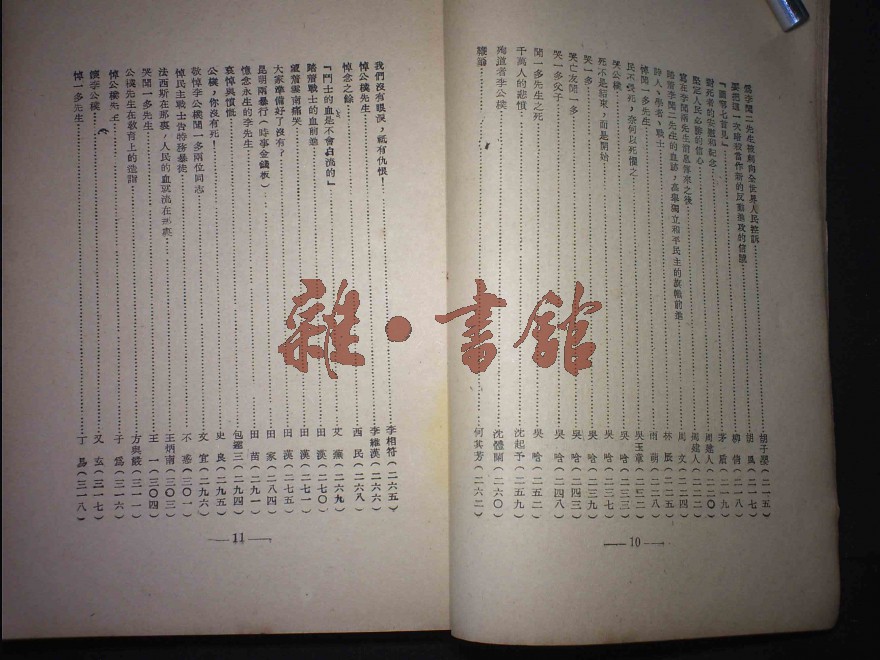 為李聞二先生被刺向全世界人民控訴……胡子嬰(二一五)
要把這一次暗殺當作新的反動進攻的信號……胡風(二一七)
『圖窮匕首見』……茅盾(二一九)
對死者的安慰和紀念……周建人(二二〇)
堅定人民必勝的信心……周建人(二二二)
寫在李聞兩先生消息傳來之後……周文(二二四)
踏著李聞二先生的血跡，高舉獨立和平民主的旗幟前進……林辰(二二五)
詩人，學者，戰士……雨萌(二二八)
悼聞一多先生……吳玉章(二三二)
民不畏死，奈何以死懼之……吳晗(二三三)
哭公樸……吳晗(二三七)
死不是結束，而是開始……吳晗(二三九)
哭一多……吳晗(二四三)
哭亡友聞一多……吳晗(二四八)
哭一多父子……吳晗(二五二)
聞一多先生之死
千萬人的悲憤……沈起予(二五九)
殉道者李公樸……沈體蘭(二六〇)
……何其芳(二六二)
—10—
我們沒有眼淚，祇有仇恨！……李相符(二六五)
悼公樸先生……李維漢(二六六)
悼念之餘……西民(二六八)
『鬥士的血是不會白流的』……艾蕪(二六九)
踏著戰士的血前進……田漢(二七〇)
望著雲南痛哭……田漢(二七一)
大家準備好了沒有？……田漢(二七五)
昆明兩暴行(時事金錢板)……田家(二八四)
憶念永生的李先生……田苗(二九一)
哀悼與憤慨……包達三(二九四)
公樸，你沒有死！……史良(二九五)
敬悼李公樸聞一多兩位同志……文宜(二九六)
悼民主戰士告特務暴徒……不惑(三〇一)
法西斯在那裏，人民的血就流在那裏……王炳南(三〇三)
哭聞一多先生……王一(三〇四)
公樸先生在教育上的造詣……方與嚴(三一一)
悼公樸先生……子為(三一六)
讀李公樸……又玄(三一七)
悼一多先生……丁易(三一八)
—11—
雜·書館